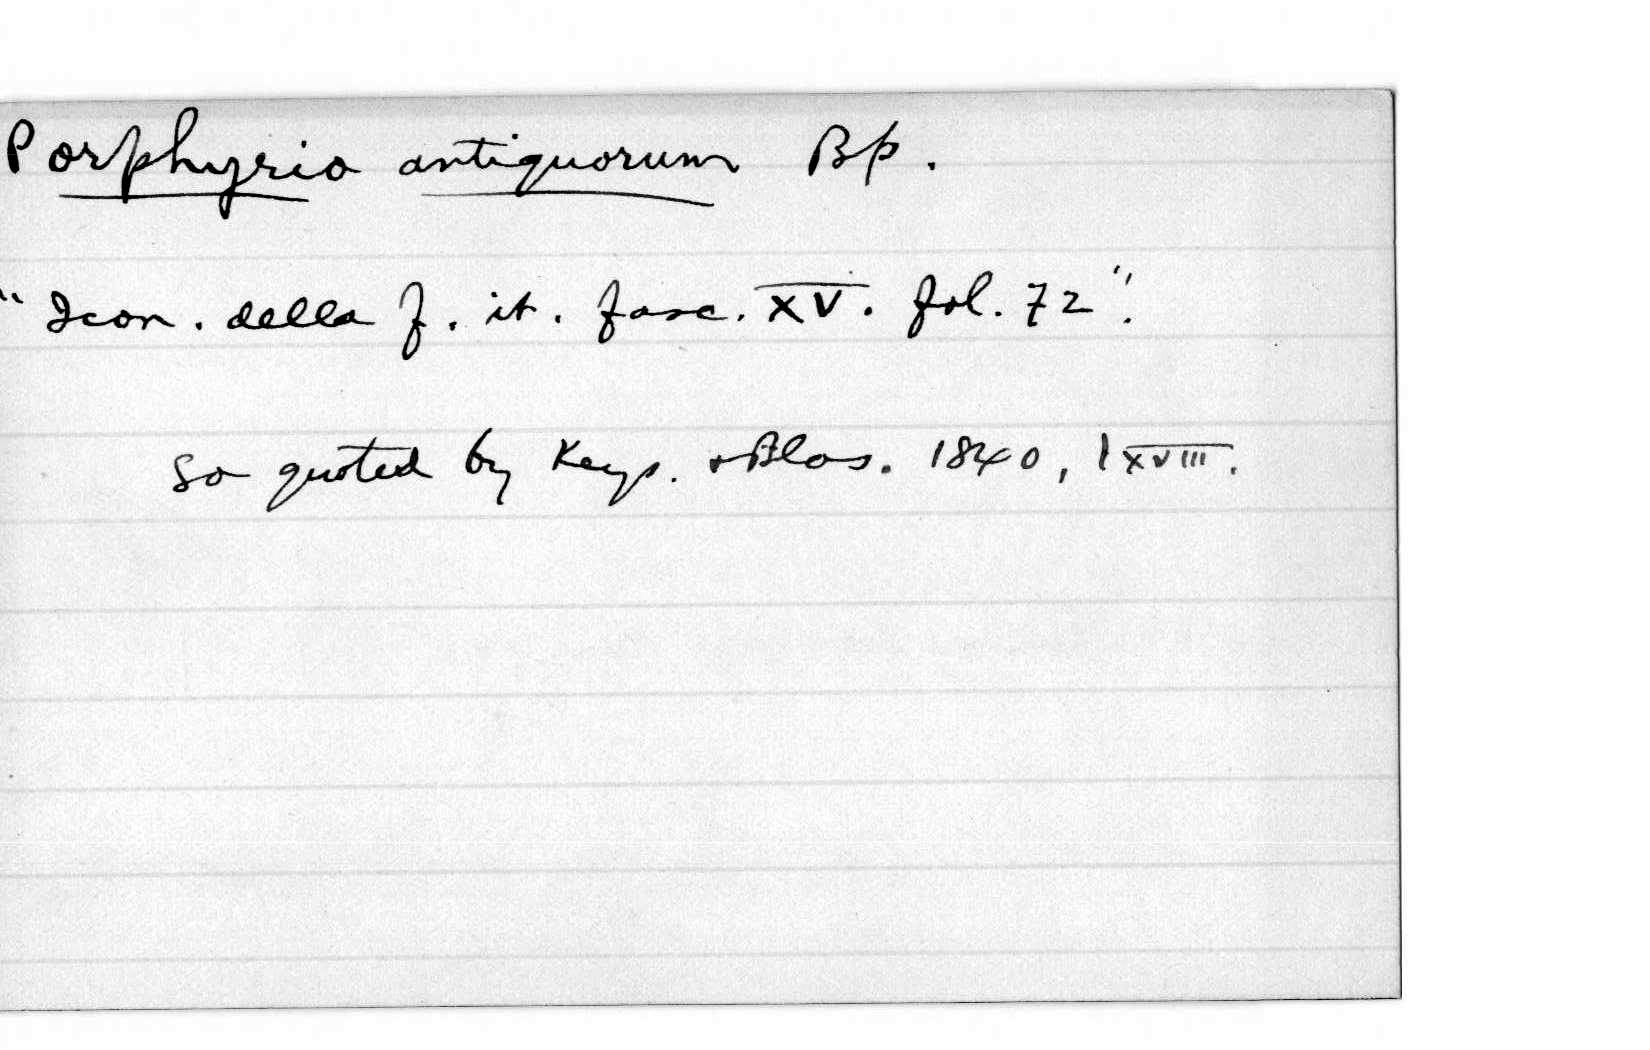 Porphyrio antiquorum Bp.
"Icon. della f. it. fasc. XV. fol. 72".
So quoted by Keys. & Blas. 1840, lxviii.